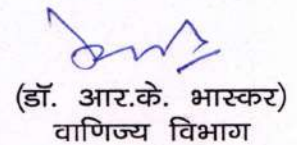 (डॉ. आर.के. भास्कर)
वाणिज्य विभाग